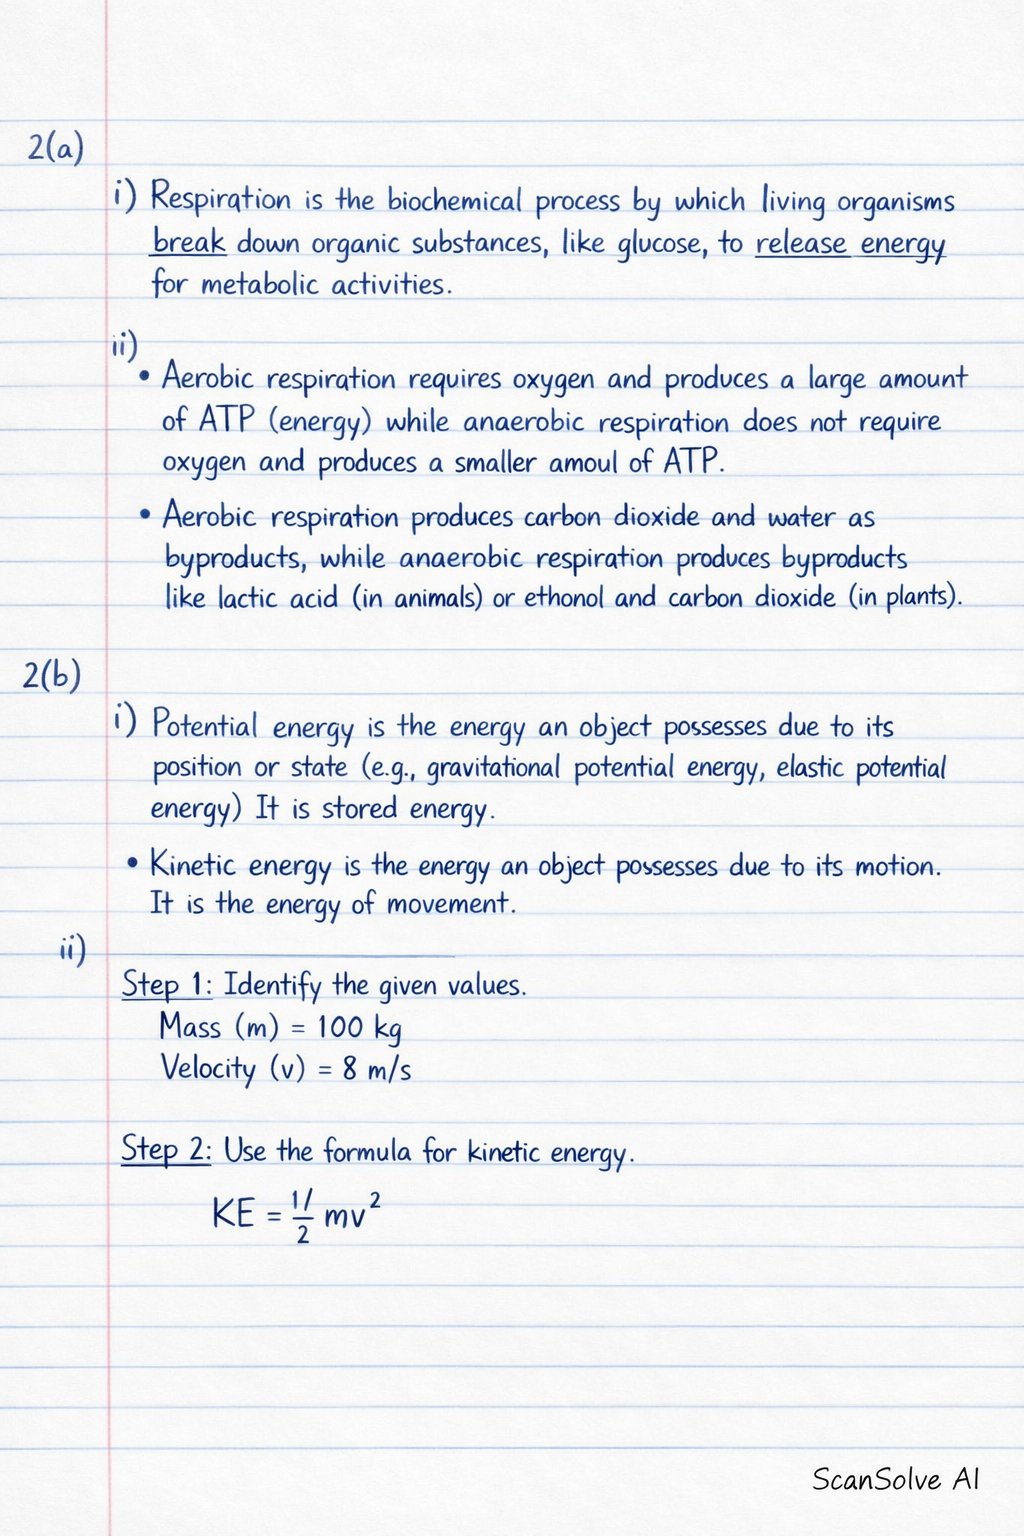 2(a)
i) Respiration is the biochemical process by which living organisms
break down organic substances, like glucose, to release energy
for metabolic activities.
ii)
• Aerobic respiration requires oxygen and produces a large amount
of ATP (energy) while anaerobic respiration does not require
oxygen and produces a smaller amoul of ATP.
• Aerobic respiration produces carbon dioxide and water as
byproducts, while anaerobic respiration produces byproducts
like lactic acid (in animals) or ethonol and carbon dioxide (in plants).
2(b)
i) Potential energy is the energy an object possesses due to its
position or state (e.g., gravitational potential energy, elastic potential
energy) It is stored energy.
• Kinetic energy is the energy an object possesses due to its motion.
It is the energy of movement.
ii)
Step 1: Identify the given values.
Mass (m) = 100 kg
Velocity (v) = 8 m/s
Step 2: Use the formula for kinetic energy.
KE = 1/2 mv²
ScanSolve AI